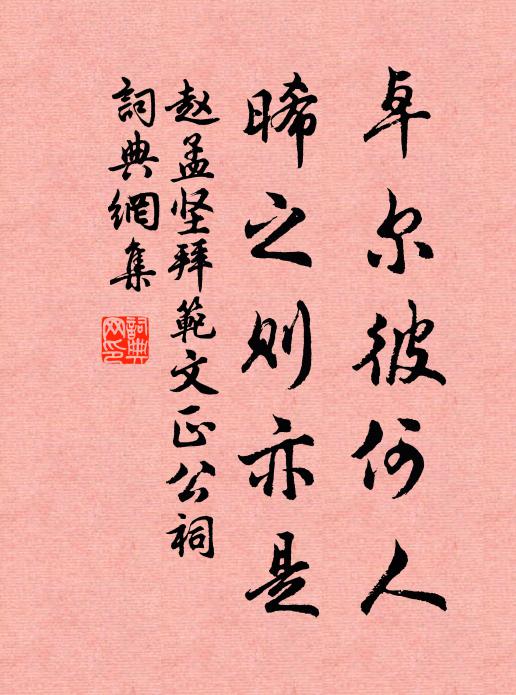 卓尔彼何人
晞之则亦是
赵孟坚拜範文正公祠
詞典網集
詞典網印